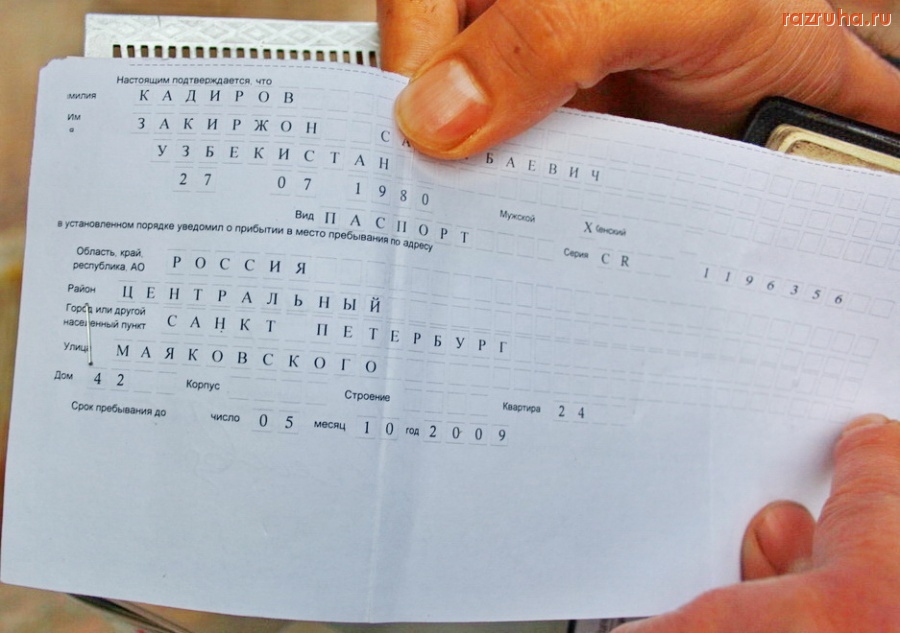 razruha.ru
Настоящим подтверждается, что
милия КАДИРОВ
Им ЗАКИРЖОН
УЗБЕКИСТАН
27 07 1980
Вид ПАСПОРТ Мужской X Женский Серия CR 1196356
в установленном порядке уведомил о прибытии в место пребывания по адресу
Область, край, республика, АО РОССИЯ
Район ЦЕНТРАЛЬНЫЙ
Город или другой населенный пункт САНКТ ПЕТЕРБУРГ
Улица МАЯКОВСКОГО
Дом 42 Корпус Строение Квартира 24
Срок пребывания до число 05 месяц 10 год 2009